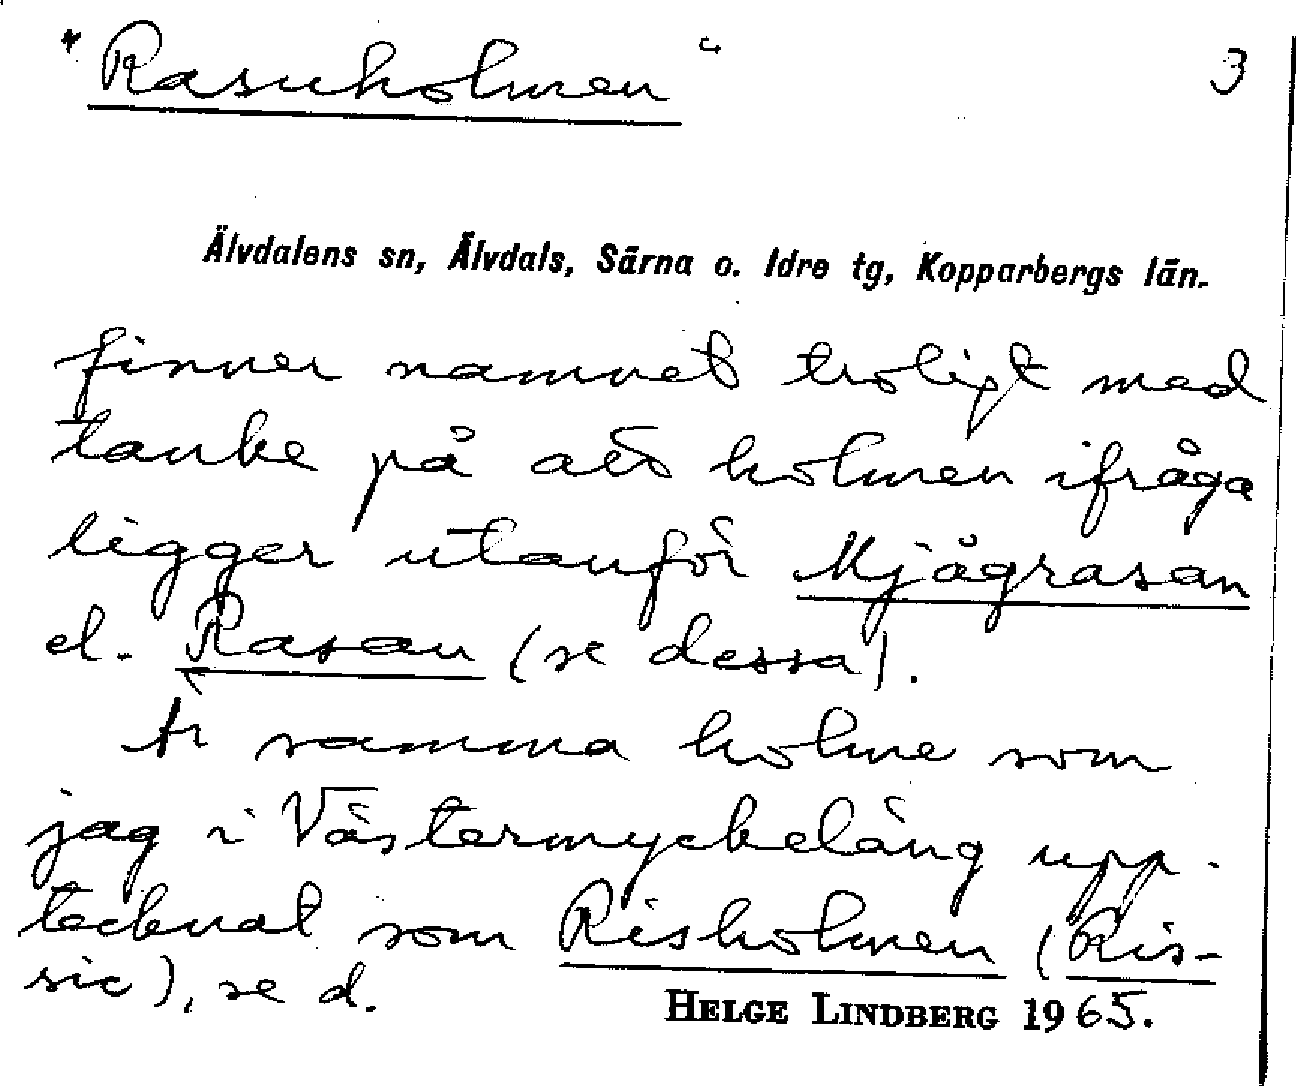 "Rasuholmen" 3
Älvdalens sn, Älvdals, Särna o. Idre tg, Kopparbergs län.
finner namnet troligt med
tanke på att holmen ifråga
ligger utanför Mjågrasan
el. Rasan (se dessa).
Är samma holme som
jag i Västermyckeläng upp-
tecknat som Risholmen (Ris-
sic), se d.
HELGE LINDBERG 1965.